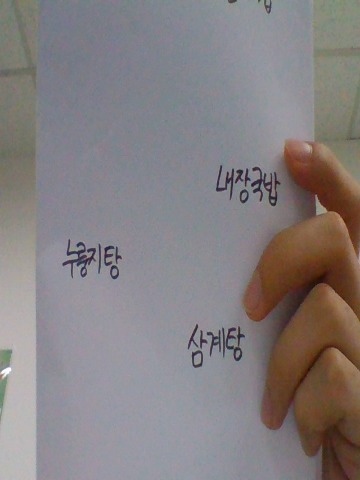 내장국밥
누룽지탕
삼계탕